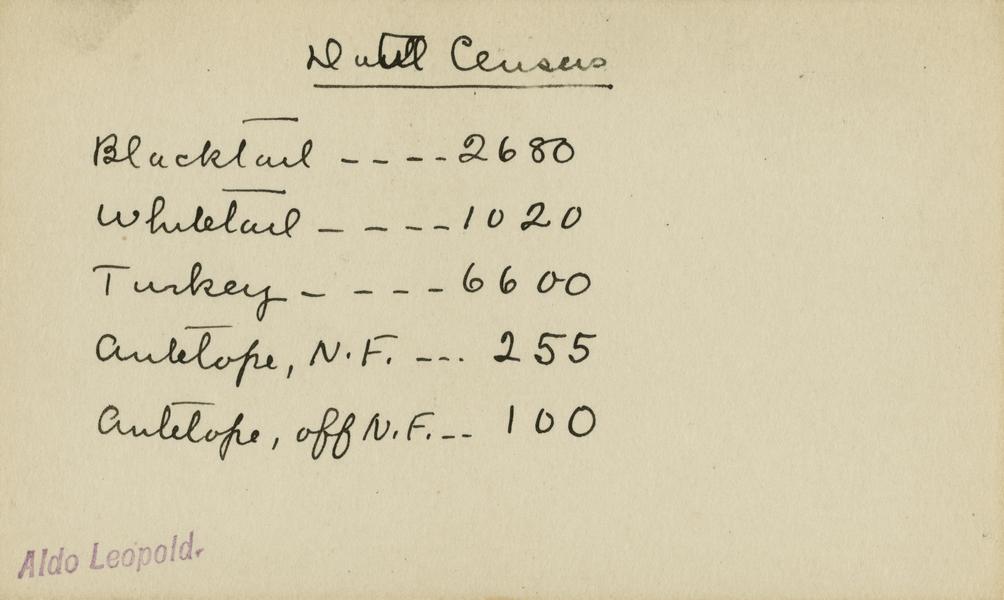 Datil Census
Blacktail ---- 2680
Whitetail ---- 1020
Turkey ---- 6600
Antelope, N.F. --- 255
Antelope, off N.F. -- 100
Aldo Leopold.